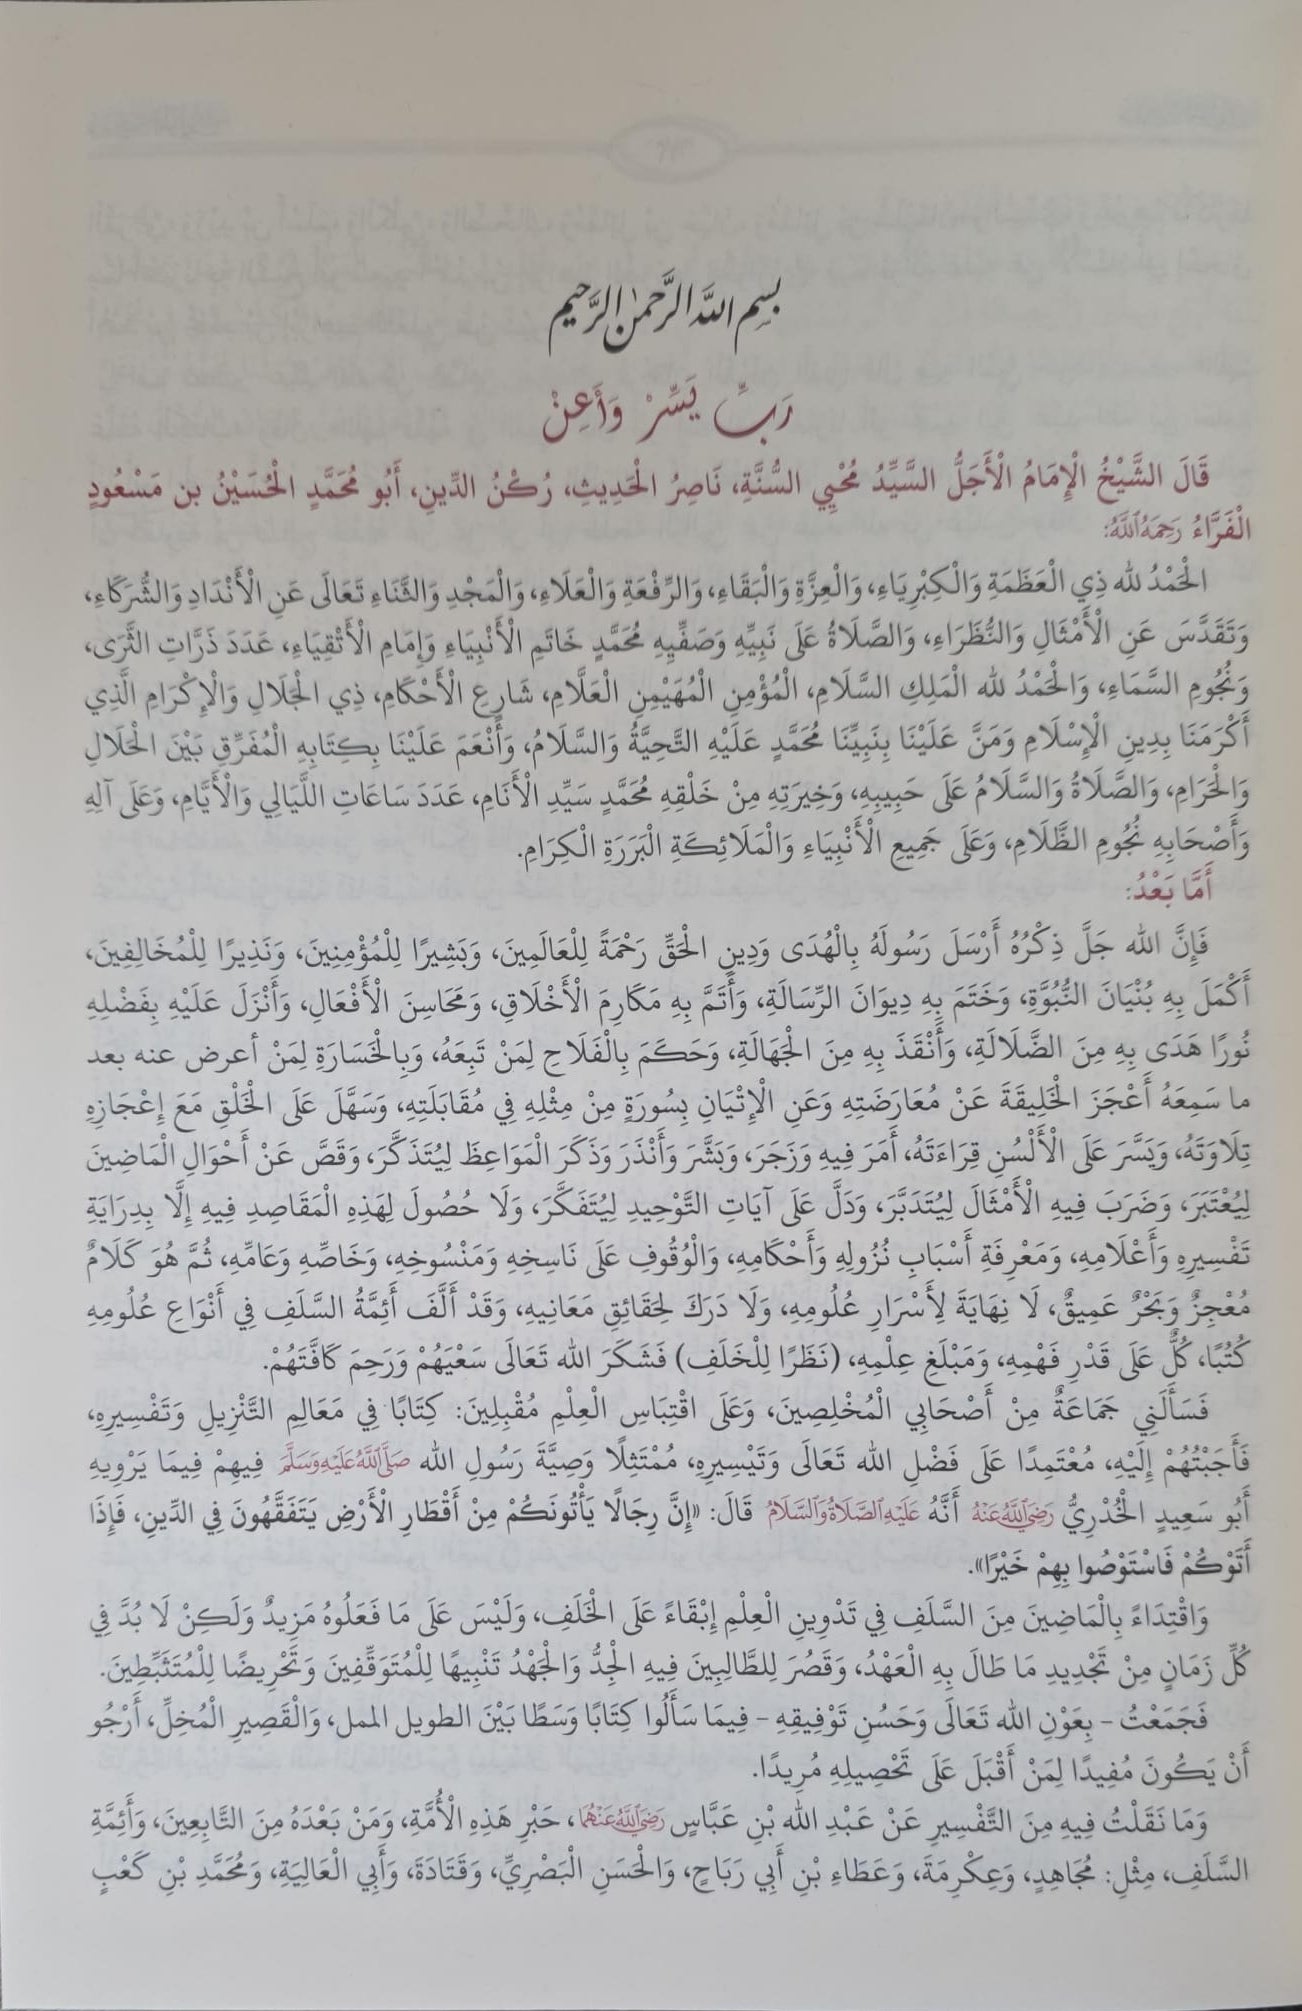 بِسْمِ اللَّهِ الرَّحْمٰنِ الرَّحِيمِ
رَبِّ يَسِّرْ وَأَعِنْ
قَالَ الشَّيْخُ الْإِمَامُ الْأَجَلُّ السَّيِّدُ مُحْيِي السُّنَّةِ، نَاصِرُ الْحَدِيثِ، رُكْنُ الدِّينِ، أَبُو مُحَمَّدٍ الْحُسَيْنُ بن مَسْعُودٍ
الْفَرَّاءُ رَحِمَهُ اللَّهُ:
الْحَمْدُ لله ذِي الْعَظَمَةِ وَالْكِبْرِيَاءِ، وَالْعِزَّةِ وَالْبَقَاءِ، وَالرِّفْعَةِ وَالْعَلَاءِ، وَالْمَجْدِ وَالثَّنَاءِ تَعَالَى عَنِ الْأَنْدَادِ وَالشُّرَكَاءِ،
وَتَقَدَّسَ عَنِ الْأَمْثَالِ وَالنُّظَرَاءِ، وَالصَّلَاةُ عَلَى نَبِيِّهِ وَصَفِّيِهِ مُحَمَّدٍ خَاتَمِ الْأَنْبِيَاءِ وَإِمَامِ الْأَتْقِيَاءِ، عَدَدَ ذَرَّاتِ الثَّرَى،
وَنُجُومِ السَّمَاءِ، وَالْحَمْدُ لله الْمَلِكِ السَّلَامِ، الْمُؤْمِنِ الْمُهَيْمِنِ الْعَلَّامِ، شَارِعِ الْأَحْكَامِ، ذِي الْجَلَالِ وَالْإِكْرَامِ الَّذِي
أَكْرَمَنَا بِدِينِ الْإِسْلَامِ وَمَنَّ عَلَيْنَا بِنَبِيِّنَا مُحَمَّدٍ عَلَيْهِ التَّحِيَّةُ وَالسَّلَامُ، وَأَنْعَمَ عَلَيْنَا بِكِتَابِهِ الْمُفَرِّقِ بَيْنَ الْحَلَالِ
وَالْحَرَامِ، وَالصَّلَاةُ وَالسَّلَامُ عَلَى حَبِيبِهِ، وَخِيرَتِهِ مِنْ خَلْقِهِ مُحَمَّدٍ سَيِّدِ الْأَنَامِ، عَدَدَ سَاعَاتِ اللَّيَالِي وَالْأَيَّامِ، وَعَلَى آلِهِ
وَأَصْحَابِهِ نُجُومِ الظَّلَامِ، وَعَلَى جَمِيعِ الْأَنْبِيَاءِ وَالْمَلَائِكَةِ الْبَرَرَةِ الْكِرَامِ.
أَمَّا بَعْدُ:
فَإِنَّ الله جَلَّ ذِكْرُهُ أَرْسَلَ رَسُولَهُ بِالْهُدَى وَدِينِ الْحَقِّ رَحْمَةً لِلْعَالَمِينَ، وَبَشِيرًا لِلْمُؤْمِنِينَ، وَنَذِيرًا لِلْمُخَالِفِينَ،
أَكْمَلَ بِهِ بُنْيَانَ النُّبُوَّةِ، وَخَتَمَ بِهِ دِيوَانَ الرِّسَالَةِ، وَأَتَمَّ بِهِ مَكَارِمَ الْأَخْلَاقِ، وَمَحَاسِنَ الْأَفْعَالِ، وَأَنْزَلَ عَلَيْهِ بِفَضْلِهِ
نُورًا هَدَى بِهِ مِنَ الضَّلَالَةِ، وَأَنْقَذَ بِهِ مِنَ الْجَهَالَةِ، وَحَكَمَ بِالْفَلَاحِ لِمَنْ تَبِعَهُ، وَبِالْخَسَارَةِ لِمَنْ أعرض عنه بعد
ما سَمِعَهُ أَعْجَزَ الْخَلِيقَةَ عَنْ مُعَارَضَتِهِ وَعَنِ الْإِتْيَانِ بِسُورَةٍ مِنْ مِثْلِهِ فِي مُقَابَلَتِهِ، وَسَهَّلَ عَلَى الْخَلْقِ مَعَ إِعْجَازِهِ
تِلَاوَتَهُ، وَيَسَّرَ عَلَى الْأَلْسُنِ قِرَاءَتَهُ، أَمَرَ فِيهِ وَزَجَرَ، وَبَشَّرَ وَأَنْذَرَ وَذَكَرَ الْمَوَاعِظَ لِيُتَذَكَّرَ، وَقَصَّ عَنْ أَحْوَالِ الْمَاضِينَ
لِيُعْتَبَرَ، وَضَرَبَ فِيهِ الْأَمْثَالَ لِيُتَدَبَّرَ، وَدَلَّ عَلَى آيَاتِ التَّوْحِيدِ لِيُتَفَكَّرَ، وَلَا حُصُولَ لِهَذِهِ الْمَقَاصِدِ فِيهِ إِلَّا بِدِرَايَةِ
تَفْسِيرِهِ وَأَعْلَامِهِ، وَمَعْرِفَةِ أَسْبَابِ نُزُولِهِ وَأَحْكَامِهِ، وَالْوُقُوفِ عَلَى نَاسِخِهِ وَمَنْسُوخِهِ، وَخَاصِّهِ وَعَامِّهِ، ثُمَّ هُوَ كَلَامٌ
مُعْجِزٌ وَبَحْرٌ عَمِيقٌ، لَا نِهَايَةَ لِأَسْرَارِ عُلُومِهِ، وَلَا دَرَكَ لِحَقَائِقِ مَعَانِيهِ، وَقَدْ أَلَّفَ أَئِمَّةُ السَّلَفِ فِي أَنْوَاعِ عُلُومِهِ
كُتُبًا، كُلٌّ عَلَى قَدْرِ فَهْمِهِ، وَمَبْلَغِ عِلْمِهِ، (نَظَرًا لِلْخَلَفِ) فَشَكَرَ الله تَعَالَى سَعْيَهُمْ وَرَحِمَ كَافَّتَهُمْ.
فَسَأَلَنِي جَمَاعَةٌ مِنْ أَصْحَابِي الْمُخْلِصِينَ، وَعَلَى اقْتِبَاسِ الْعِلْمِ مُقْبِلِينَ: كِتَابًا فِي مَعَالِمِ التَّنْزِيلِ وَتَفْسِيرِهِ،
فَأَجَبْتُهُمْ إِلَيْهِ، مُعْتَمِدًا عَلَى فَضْلِ الله تَعَالَى وَتَيْسِيرِهِ، مُمْتَثِلًا وَصِيَّةَ رَسُولِ الله صَلَّى اللَّهُ عَلَيْهِ وَسَلَّمَ فِيهِمْ فِيمَا يَرْوِيهِ
أَبُو سَعِيدٍ الْخُدْرِيُّ رَضِيَ اللَّهُ عَنْهُ أَنَّهُ عَلَيْهِ الصَّلَاةُ وَالسَّلَامُ قَالَ: «إِنَّ رِجَالًا يَأْتُونَكُمْ مِنْ أَقْطَارِ الْأَرْضِ يَتَفَقَّهُونَ فِي الدِّينِ، فَإِذَا
أَتَوْكُمْ فَاسْتَوْصُوا بِهِمْ خَيْرًا».
وَاقْتِدَاءً بِالْمَاضِينَ مِنَ السَّلَفِ فِي تَدْوِينِ الْعِلْمِ إِبْقَاءً عَلَى الْخَلَفِ، وَلَيْسَ عَلَى مَا فَعَلُوهُ مَزِيدٌ وَلَكِنْ لَا بُدَّ فِي
كُلِّ زَمَانٍ مِنْ تَجْدِيدِ مَا طَالَ بِهِ الْعَهْدُ، وَقَصُرَ لِلطَّالِبِينَ فِيهِ الْجِدُّ وَالْجَهْدُ تَنْبِيهًا لِلْمُتَوَقِّفِينَ وَتَحْرِيضًا لِلْمُتَثَبِّطِينَ.
فَجَمَعْتُ - بِعَوْنِ الله تَعَالَى وَحَسُنِ تَوْفِيقِهِ - فِيمَا سَأَلُوا كِتَابًا وَسَطًا بَيْنَ الطويل الممل، وَالْقَصِيرِ الْمُخِلِّ، أَرْجُو
أَنْ يَكُونَ مُفِيدًا لِمَنْ أَقْبَلَ عَلَى تَحْصِيلِهِ مُرِيدًا.
وَمَا نَقَلْتُ فِيهِ مِنَ التَّفْسِيرِ عَنْ عَبْدِ الله بْنِ عَبَّاسٍ رَضِيَ اللَّهُ عَنْهُمَا، حَبْرِ هَذِهِ الْأُمَّةِ، وَمَنْ بَعْدَهُ مِنَ التَّابِعِينَ، وَأَئِمَّةِ
السَّلَفِ، مِثْلِ: مُجَاهِدٍ، وَعِكْرِمَةَ، وَعَطَاءِ بْنِ أَبِي رَبَاحٍ، وَالْحَسَنِ الْبَصْرِيِّ، وَقَتَادَةَ، وَأَبِي الْعَالِيَةِ، وَمُحَمَّدِ بْنِ كَعْبٍ